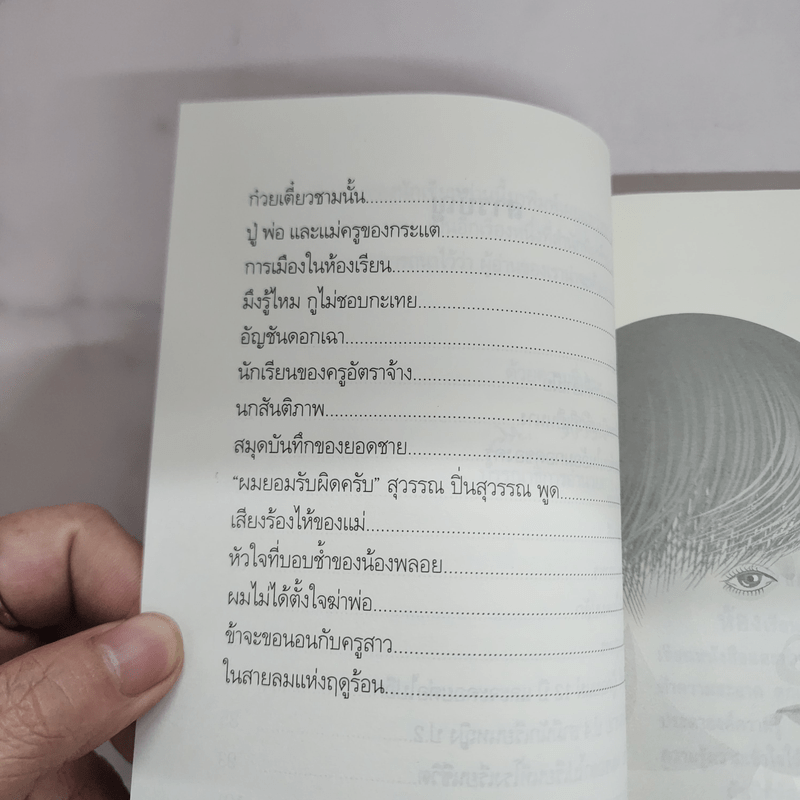 ก๋วยเตี๋ยวชามนั้น
ปู่ พ่อ และแม่ครูของกระแต
การเมืองในห้องเรียน
มึงรู้ไหม กูไม่ชอบกะเทย
อัญชันดอกเฉา
นักเรียนของครูอัตราจ้าง
นกสันติภาพ
สมุดบันทึกของยอดชาย
“ผมยอมรับผิดครับ” สุวรรณ ปิ่นสุวรรณ พูด
เสียงร้องไห้ของแม่
หัวใจที่บอบช้ำของน้องพลอย
ผมไม่ได้ตั้งใจฆ่าพ่อ
ข้าจะขอนอนกับครูสาว
ในสายลมแห่งฤดูร้อน